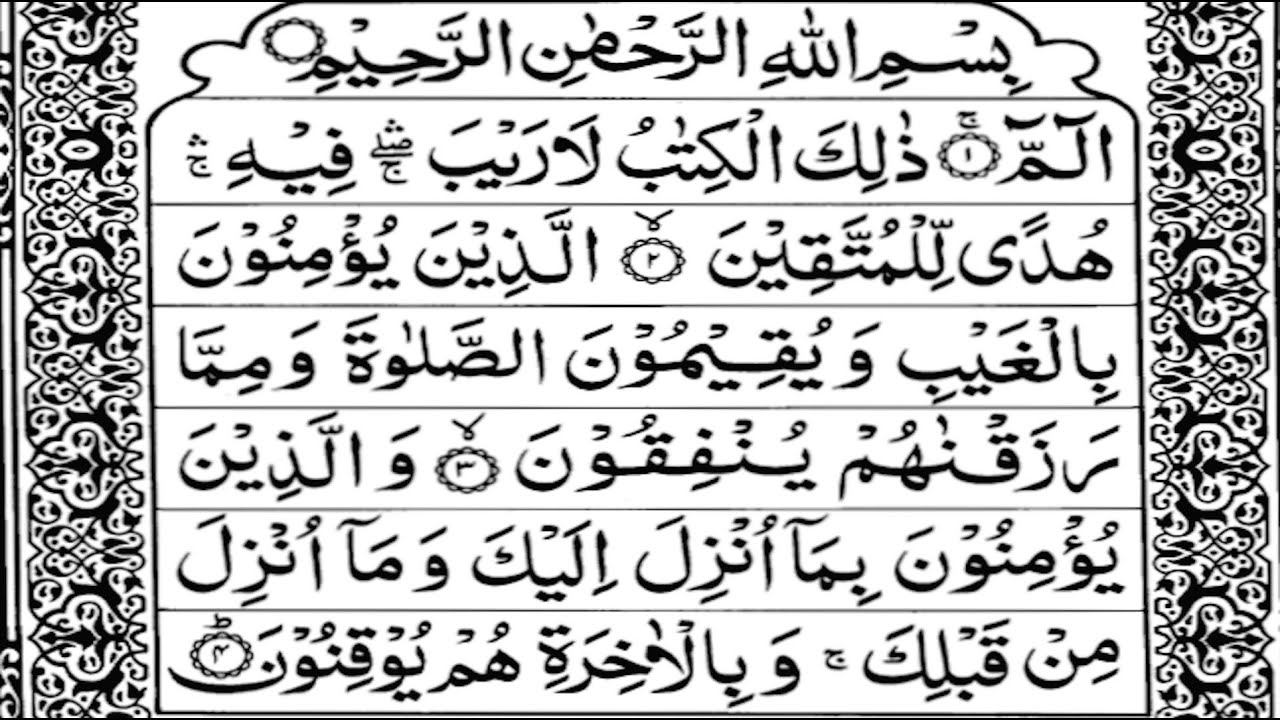 بِسْمِ اللهِ الرَّحْمٰنِ الرَّحِيْمِ
الٓمّٓ ۚ‏﴿۱﴾ ذٰلِكَ الْكِتٰبُ لَا رَيْبَ ۛۖۚ فِيْهِ ۛۚ
هُدًى لِّلْمُتَّقِيْنَ ۙ﴿۲﴾ الَّذِيْنَ يُؤْمِنُوْنَ
بِالْغَيْبِ وَيُقِيْمُوْنَ الصَّلٰوةَ وَمِمَّا
رَزَقْنٰهُمْ يُنْفِقُوْنَ ۙ﴿۳﴾ وَالَّذِيْنَ
يُؤْمِنُوْنَ بِمَآ اُنْزِلَ اِلَيْكَ وَمَآ اُنْزِلَ
مِنْ قَبْلِكَ ۚ وَبِالْاٰخِرَةِ هُمْ يُوْقِنُوْنَ ؕ﴿۴﴾